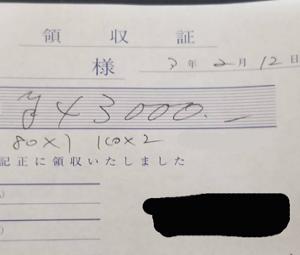 領収証
様 3年2月12日
¥43000.-
80×1 100×2
記正に領収いたしました